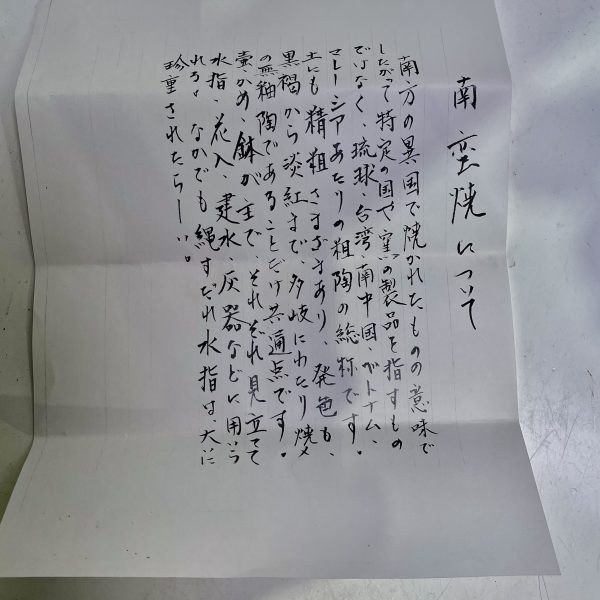 南蛮焼について
南方の異国で焼かれたものの意味で
したがって特定の国や窯の製品を指すもの
ではなく、琉球、台湾、南中国、ベトナム、
マレーシアあたりの粗陶の総称です。
土にも精粗さまざまあり、発色も、
黒褐から淡紅まで、多岐にわたり焼〆
の無釉陶であることだけ共通点です。
壷、かめ、鉢が主で、それぞれ見立てて
水指、花入、建水、灰器などに用いら
れるが なかでも縄すだれ水指は、大に
珍重されたらしい。